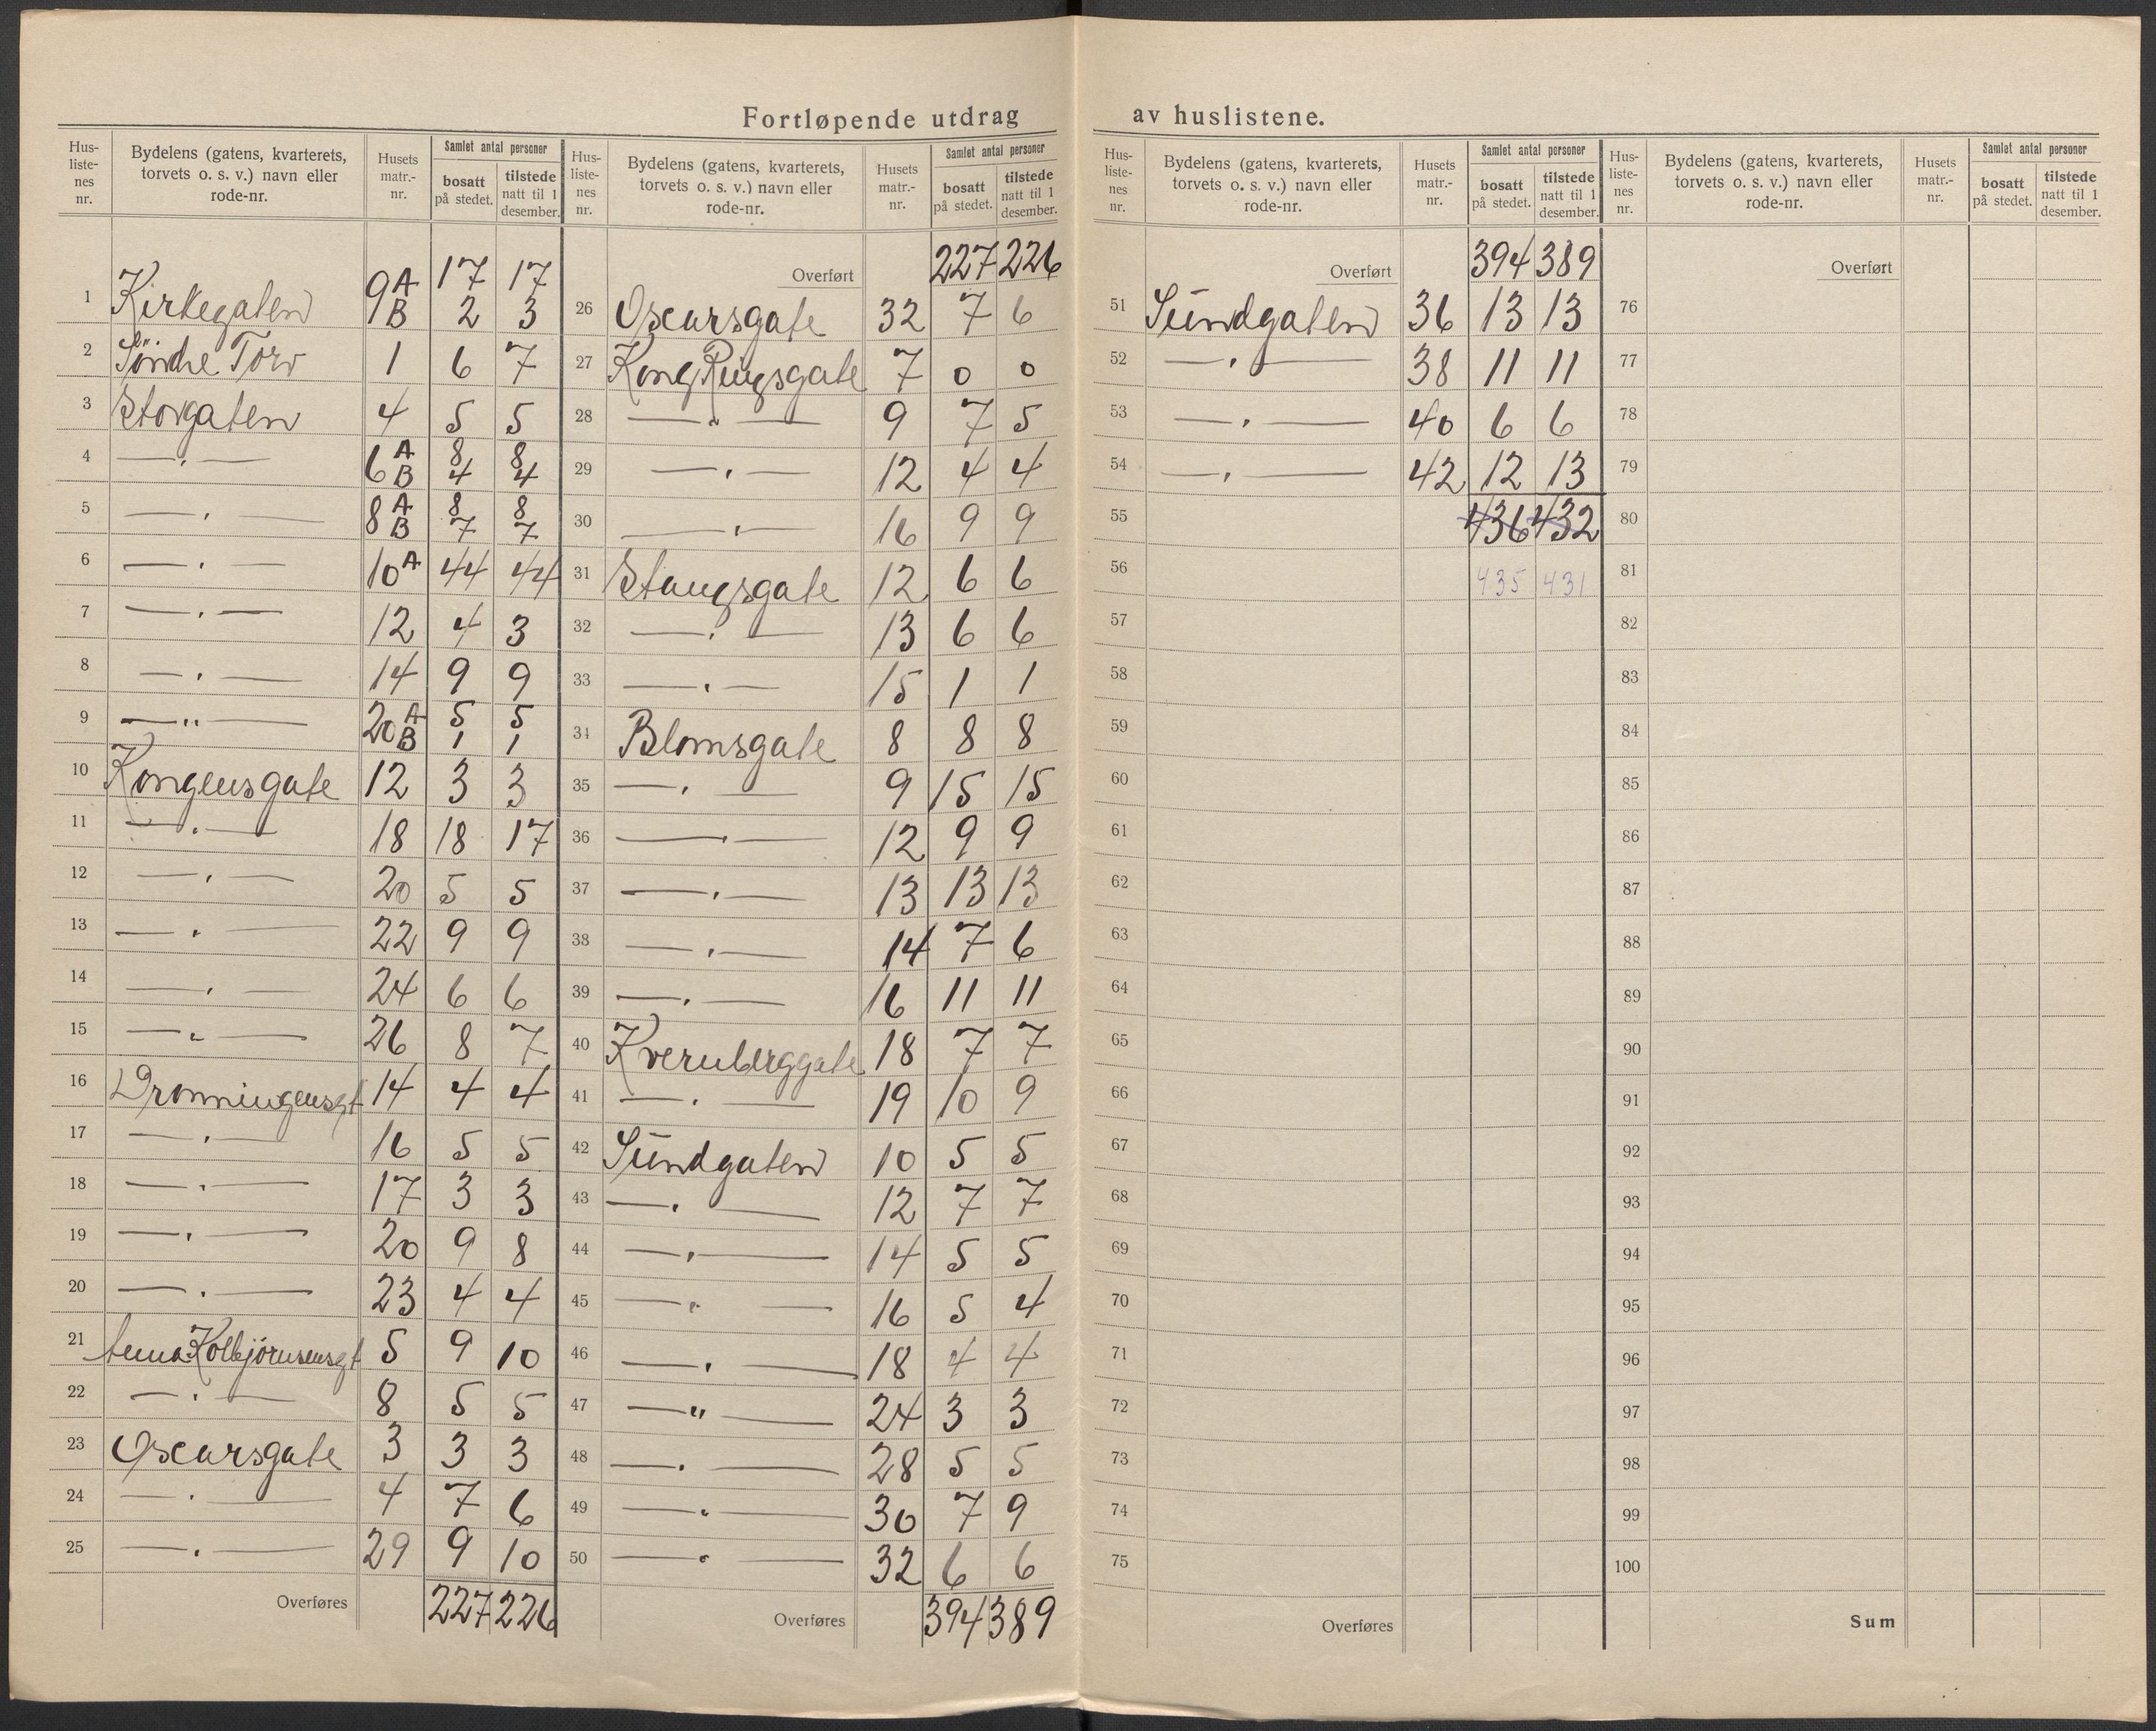 Fortløpende utdrag av huslistene.
Hus-listenes nr. | Bydelens (gatens, kvarterets, torvets o. s. v.) navn eller rode-nr. | Husets matr.-nr. | Samlet antal personer bosatt på stedet. | tilstede natt til 1 desember.
1 Kirkegaten 9A 17 17
9B 2 3
2 Söndre Torv 1 6 7
3 Storgaten 4 5 5
4 — " — 6A 8 8
B 4 4
5 — " — 8A 8 8
B 7 7
6 — " — 10A 44 44
7 — " — 12 4 3
8 — " — 14 9 9
9 — " — 20A 5 5
B 1 1
10 Kongensgate 12 3 3
11 — " — 18 18 17
12 — " — 20 5 5
13 — " — 22 9 9
14 — " — 24 6 6
15 — " — 26 8 7
16 Dronningensgt 14 4 4
17 — " — 16 5 5
18 — " — 17 3 3
19 — " — 20 9 8
20 — " — 23 4 4
21 Anna Kolbjörnsensgt 5 9 10
22 — " — 8 5 5
23 Oscarsgate 3 3 3
24 — " — 4 7 6
25 — " — 29 9 10
Overføres 227 226
Hus-listenes nr. | Bydelens (gatens, kvarterets, torvets o. s. v.) navn eller rode-nr. | Husets matr.-nr. | Samlet antal personer bosatt på stedet. | tilstede natt til 1 desember.
Overført 227 226
26 Oscarsgate 32 7 6
27 Kong Ringsgate 7 0 0
28 — " — 9 7 5
29 — " — 12 4 4
30 — " — 16 9 9
31 Stangsgate 12 6 6
32 — " — 13 6 6
33 — " — 15 1 1
34 Blomsgate 8 8 8
35 — " — 9 15 15
36 — " — 12 9 9
37 — " — 13 13 13
38 — " — 14 7 6
39 — " — 16 11 11
40 Kvernberggate 18 7 7
41 — " — 19 10 9
42 Sundgaten 10 5 5
43 — " — 12 7 7
44 — " — 14 5 5
45 — " — 16 5 4
46 — " — 18 4 4
47 — " — 24 3 3
48 — " — 28 5 5
49 — " — 30 7 9
50 — " — 32 6 6
Overføres 394 389
Hus-listenes nr. | Bydelens (gatens, kvarterets, torvets o. s. v.) navn eller rode-nr. | Husets matr.-nr. | Samlet antal personer bosatt på stedet. | tilstede natt til 1 desember.
Overført 394 389
51 Sundgaten 36 13 13
52 — " — 38 11 11
53 — " — 40 6 6
54 — " — 42 12 13
55 436 432
56 435 431
57
58
59
60
61
62
63
64
65
66
67
68
69
70
71
72
73
74
75
Overføres
Hus-listenes nr. | Bydelens (gatens, kvarterets, torvets o. s. v.) navn eller rode-nr. | Husets matr.-nr. | Samlet antal personer bosatt på stedet. | tilstede natt til 1 desember.
Overført
76
77
78
79
80
81
82
83
84
85
86
87
88
89
90
91
92
93
94
95
96
97
98
99
100
Sum